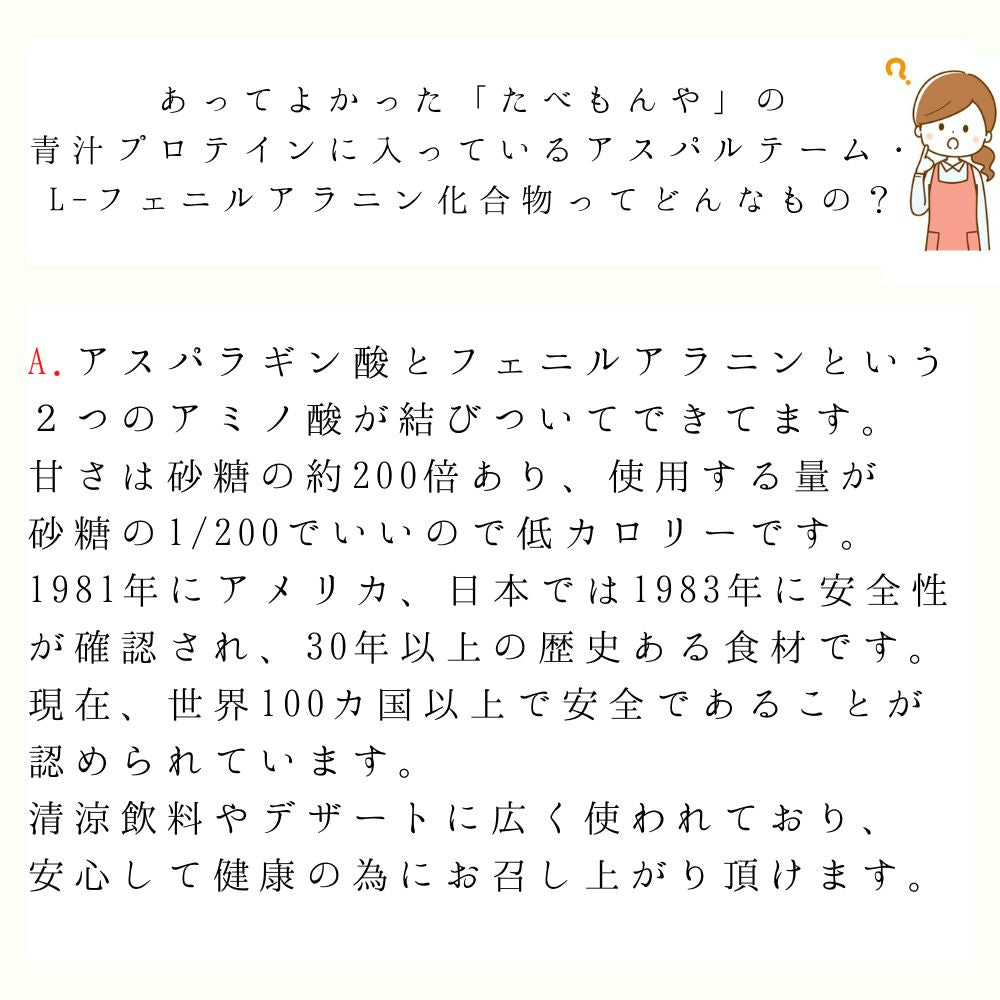 あってよかった「たべもんや」の
青汁プロテインに入っているアスパルテーム・
L-フェニルアラニン化合物ってどんなもの？
A.アスパラギン酸とフェニルアラニンという
２つのアミノ酸が結びついてできてます。
甘さは砂糖の約200倍あり、使用する量が
砂糖の1/200でいいので低カロリーです。
1981年にアメリカ、日本では1983年に安全性
が確認され、30年以上の歴史ある食材です。
現在、世界100カ国以上で安全であることが
認められています。
清涼飲料やデザートに広く使われており、
安心して健康の為にお召し上がり頂けます。